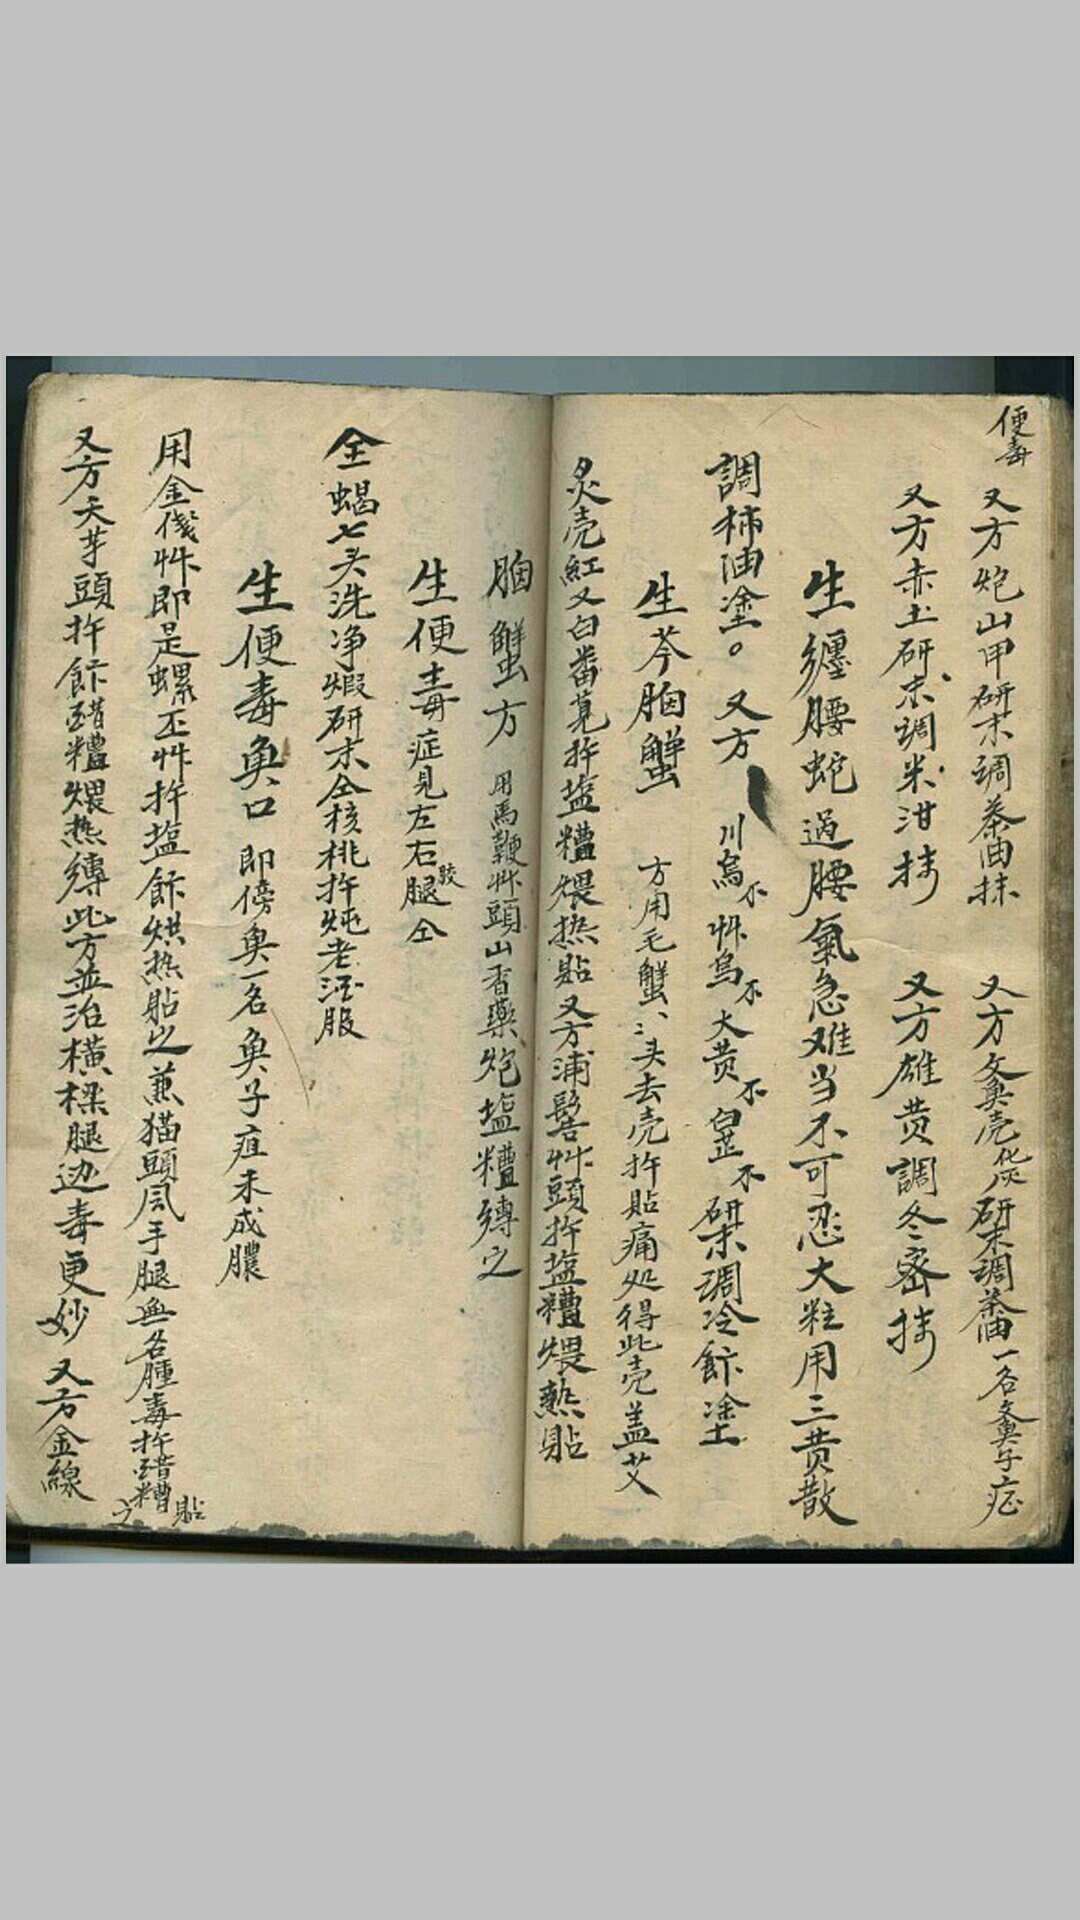 便毒
又方炮山甲研末調茶油抹　又方文魚壳化灰研末調茶油一名文魚子症
又方赤土研末調米泔抹　又方雄黄調冬密抹
生纏腰蛇過腰氣急难当不可忍大粒用三黄散
調柿油塗。又方　川烏　艸烏　大黄　研末調冷塗
生芩胸蟹　方用毛蟹二头去壳扞貼痛处得此壳盖艾
炙壳紅又白番莧扞塩糟煨热貼又方浦鬂艸頭扞塩糟煨熱貼
胸蟹方　用馬鞭艸頭山香藥炮塩糟縛之
生便毒症見左右腿仝
仝蝎七头洗净煆研末仝核桃扞炖老酒服
生便毒魚口　即傍魚一名魚子疽未成膿
用金線艸即是螺丕艸扞塩烘热貼之兼猫頭風手腿無名腫毒扞醋糟貼之
又方天芋頭扞醋糟煨热縛此方並治横樑腿边毒更妙　又方金線